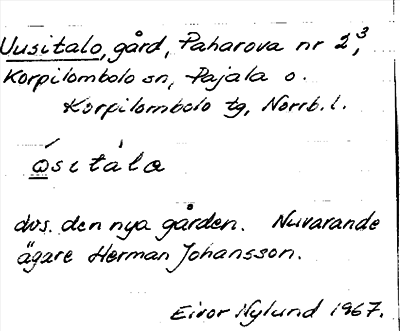 Uusitalo, gård, Paharova nr 2,³
Korpilombolo sn, Pajala o.
Korpilombolo tg, Norrb. l.
ɷ́sitàlα
dvs. den nya gården. Nuvarande
ägare Herman Johansson.
Eivor Nylund 1967.